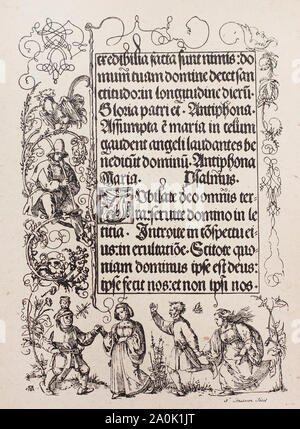 credibilia facta sunt nimis: do
mum tuam domine decet san
ctitudo: in longitudine dierū.
Gloria patri et. Antiphona.
Assumpta ē maria in celum
gaudent angeli laudantes be
nedicūt dominū. Antiphona
Maria. Psalmus.
Iubilate deo omnis ter
ra: servite domino in le
ticia. Introite in cōspectu ei
us: in exultatiōe. Scitote quo
niam dominus ipse est deus:
ipse fecit nos: et non ipsi nos.
alamy
2A0K1JT